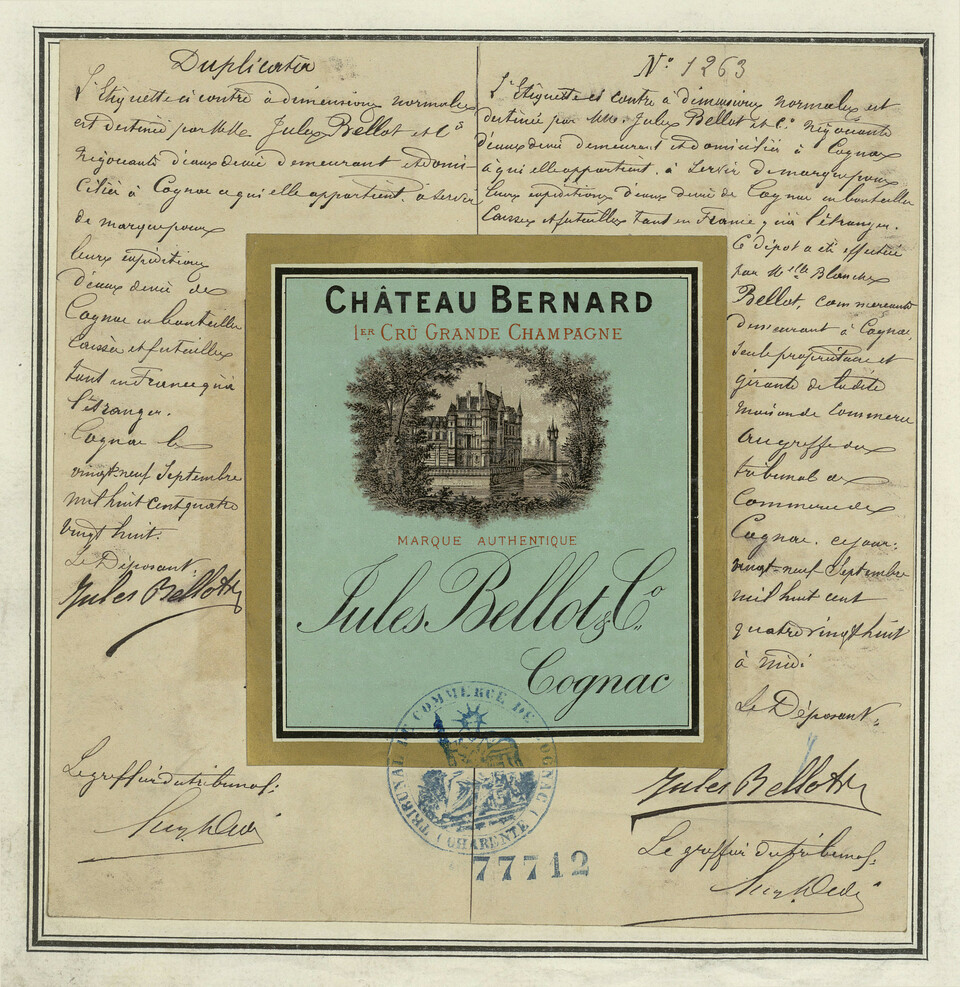 Duplicata
L'Etiquette ci contre à dimensions normales
est destinée par MM. Jules Bellot et Cº
Négociants d'eaux de vie demeurant et domi-
ciliés à Cognac à qui elle appartient, à servir
de marque pour
leurs expéditions
d'eaux de vie de
Cognac en bouteilles
Caisses et futailles
tant en France qu'à
l'étranger.
Cognac le
vingt neuf Septembre
mil huit cent quatre
vingt huit.
Le Déposant
Jules Bellot
Le greffier du tribunal:
Nº 1263
L'Etiquette ci contre à dimensions normales est
destinée par MM. Jules Bellot et Cº Négociants
d'eaux de vie demeurant et domiciliés à Cognac
à qui elle appartient, à servir de marque pour
leurs expéditions d'eaux de vie de Cognac en bouteilles
Caisses et futailles tant en France qu'à l'étranger.
Ce dépot a été effectué
par Melle Blanche
Bellot, commerçante
demeurant à Cognac,
seule propriétaire et
gérante de ladite
maison de Commerce
au greffe du
tribunal de
Commerce de
Cognac, ce jour:
vingt neuf Septembre
mil huit cent
quatre vingt huit
à midi
Le Déposant,
Jules Bellot
Le greffier du tribunal:
CHÂTEAU BERNARD
1ER CRÛ GRANDE CHAMPAGNE
MARQUE AUTHENTIQUE
Jules Bellot & Cº
Cognac
TRIBUNAL DE COMMERCE DE COGNAC
( CHARENTE )
77712